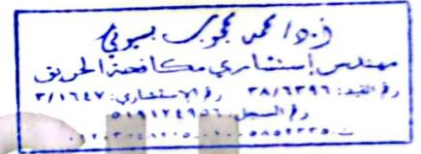 د/ محمد محجوب بسيوني
مهندس إستشاري مكافحة الحريق
رقم القيد: ٣٨/٦٣٩٦ رقم الاستشاري: ٣/١٦٤٧
رقم السجل: ٥١٩١٢٤٩٥٦